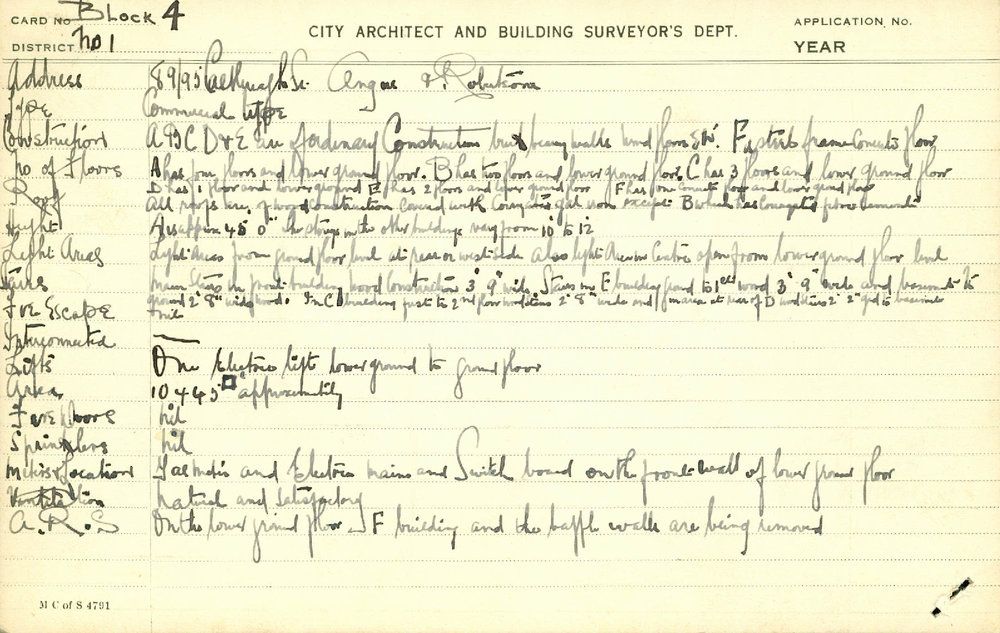 CARD NO Block 4
CITY ARCHITECT AND BUILDING SURVEYOR'S DEPT.
APPLICATION NO.
DISTRICT No 1
YEAR
Address 89/95 Castlereagh St. Angus & Robertson
Type Commercial type
Construction A B C D & E are of ordinary Construction brick bearing walls wood floors F frame floor
No of Floors A has four floors and lower ground floor. B has two floors and lower ground floor, C has 3 floors and lower ground floor
D has 1 floor and lower ground E has 2 floors and lower ground floor F has one floor and lower ground floor
Roof All roofs are of wood construction covered with gal iron except B which has
Height A is approx 45' 0" the other buildings vary from 10' to 12'
Light Areas Light Areas from ground floor level at rear or west side also light Area in Centre open from lower ground floor level
Stairs Main Stairs in front building wood Construction 3' 9" wide, Stairs in E building ground to 1st wood 3' 9" wide and basement to
ground 2' 8" wide wood. In C building to 2nd floor 2' 8" wide and at rear of D 2' 2" to basement
Fire Escape nil
Interconnected —
Lifts One Electric lift lower ground to ground floor
Area 10445 □' approximately
Fire Doors nil
Sprinklers nil
Meters & Location Gas meters and Electric mains and Switch board on the front wall of lower ground floor
Ventilation natural and satisfactory
A.R.S On the lower ground floor F building and the baffle walls are being removed
M C of S 4791